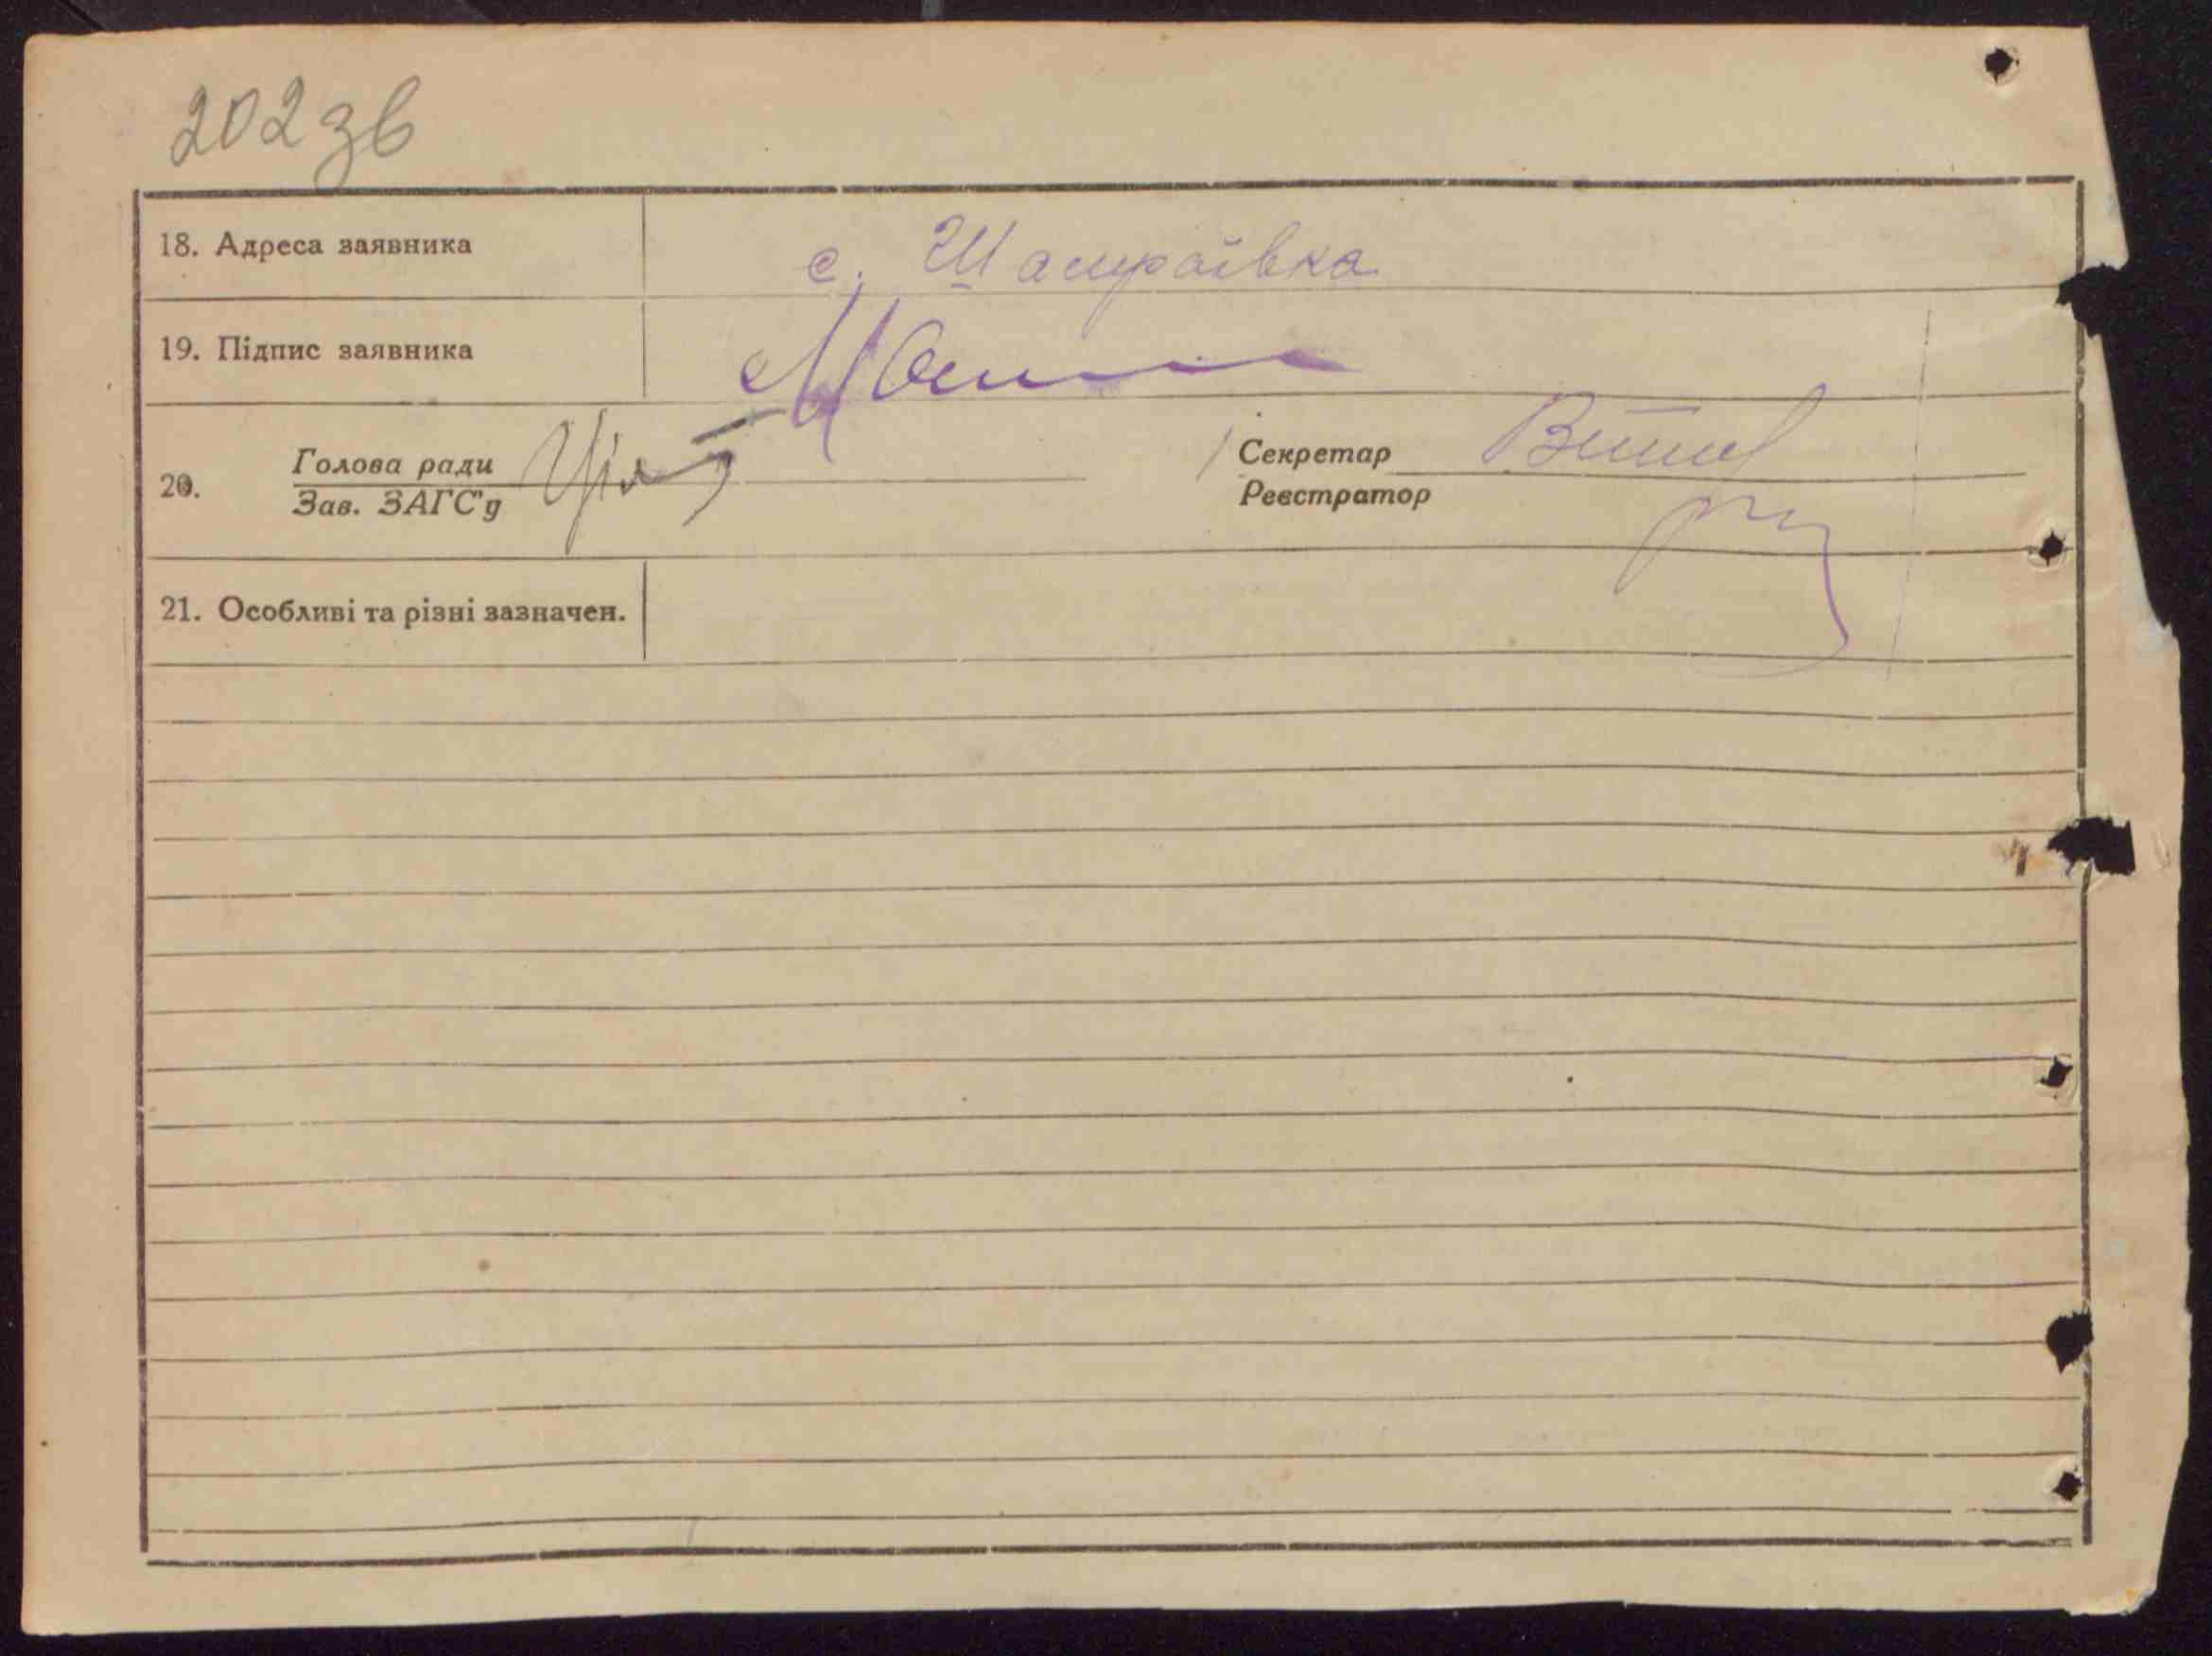 202 зв
18. Адреса заявника с. Шамраївка
19. Підпис заявника
20. Голова ради
Зав. ЗАГС'у
Секретар
Реєстратор
21. Особливі та різні зазначен.